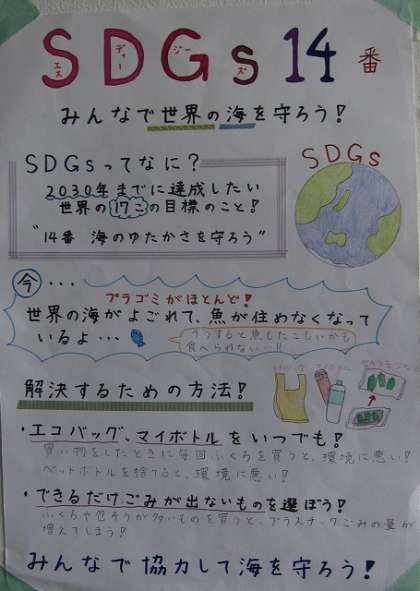 SDGs 14番
エスディージーズ
みんなで世界の海を守ろう！
SDGsってなに？
2030年までに達成したい
世界の17この目標のこと！
"14番 海のゆたかさを守ろう"
SDGs
今・・・
プラゴミがほとんど！
世界の海がよごれて、魚が住めなくなって
いるよ・・・
そうすると魚もたこもいかも
食べられない…!!
解決するための方法！
・エコバッグ、マイボトルをいつでも！
買い物をしたときに毎回ふくろを買うと、環境に悪い！
ペットボトルを捨てると、環境に悪い！
・できるだけごみが出ないものを選ぼう！
ふくろや包そうが多いものを買うと、プラスチックごみの量が
増えてしまう！
みんなで協力して海を守ろう！